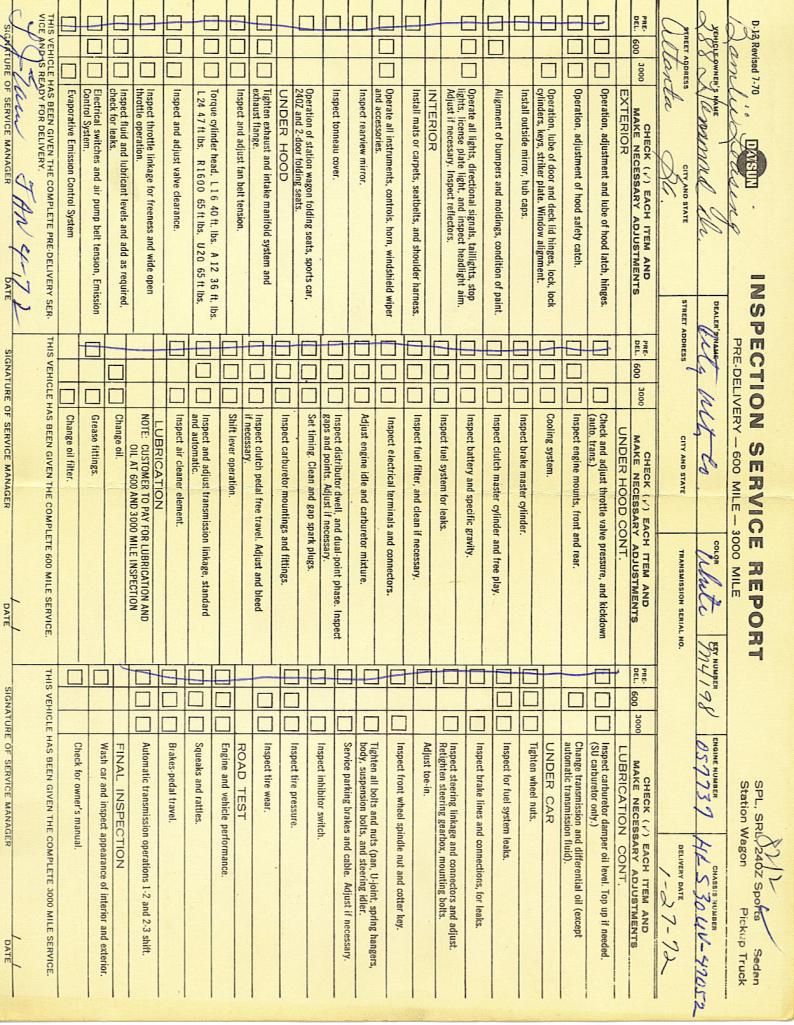 D-12 Revised 7-70
DATSUN
INSPECTION SERVICE REPORT
PRE-DELIVERY — 600 MILE — 3000 MILE
SPL, SRL, 240Z Sports Sedan
Station Wagon Pickup Truck
Family Leasing
VEHICLE OWNER'S NAME
DEALER'S NAME
COLOR White
KEY NUMBER
ENGINE NUMBER 057737
CHASSIS NUMBER HLS30UV-47052
Dr.
STREET ADDRESS CITY AND STATE
STREET ADDRESS CITY AND STATE
TRANSMISSION SERIAL NO.
DELIVERY DATE 1-27-72
Atlanta Ga.
CHECK (✓) EACH ITEM AND
PRE-DEL. 600 3000 MAKE NECESSARY ADJUSTMENTS
EXTERIOR
Operation, adjustment and lube of hood latch, hinges.
Operation, adjustment of hood safety catch.
Operation, lube of door and deck lid hinges, lock, lock
cylinders, keys, striker plate. Window alignment.
Install outside mirror, hub caps.
Alignment of bumpers and moldings, condition of paint.
Operate all lights, directional signals, taillights, stop
lights, license plate light, and inspect headlight aim.
Adjust if necessary. Inspect reflectors.
INTERIOR
Install mats or carpets, seatbelts, and shoulder harness.
Operate all instruments, controls, horn, windshield wiper
and accessories.
Inspect rearview mirror.
Inspect tonneau cover.
Operation of station wagon folding seats, sports car,
240Z and 2-door folding seats.
UNDER HOOD
Tighten exhaust and intake manifold system and
exhaust flange.
Inspect and adjust fan belt tension.
Torque cylinder head, L16 40 ft. lbs. A12 36 ft. lbs.
L24 47 ft. lbs. R1600 65 ft. lbs. U20 65 ft. lbs.
Inspect and adjust valve clearance.
Inspect throttle linkage for freeness and wide open
throttle operation.
Inspect fluid and lubricant levels and add as required,
check for leaks.
Electrical switches and air pump belt tension, Emission
Control System.
Evaporative Emission Control System
THIS VEHICLE HAS BEEN GIVEN THE COMPLETE PRE-DELIVERY SER-
VICE AND IS READY FOR DELIVERY.
JAN 4-72
SIGNATURE OF SERVICE MANAGER DATE
CHECK (✓) EACH ITEM AND
PRE-DEL. 600 3000 MAKE NECESSARY ADJUSTMENTS
UNDER HOOD CONT.
Check and adjust throttle valve pressure, and kickdown
(auto. trans.)
Inspect engine mounts, front and rear.
Cooling system.
Inspect brake master cylinder.
Inspect clutch master cylinder and free play.
Inspect battery and specific gravity.
Inspect fuel system for leaks.
Inspect fuel filter, and clean if necessary.
Inspect electrical terminals and connectors.
Adjust engine idle and carburetor mixture.
Inspect distributor dwell, and dual-point phase. Inspect
gaps and points. Adjust if necessary.
Set timing. Clean and gap spark plugs.
Inspect carburetor mountings and fittings.
Inspect clutch pedal free travel. Adjust and bleed
if necessary.
Shift lever operation.
Inspect and adjust transmission linkage, standard
and automatic.
Inspect air cleaner element.
LUBRICATION
NOTE: CUSTOMER TO PAY FOR LUBRICATION AND
OIL AT 600 AND 3000 MILE INSPECTION
Change oil.
Grease fittings.
Change oil filter.
THIS VEHICLE HAS BEEN GIVEN THE COMPLETE 600 MILE SERVICE.
SIGNATURE OF SERVICE MANAGER DATE
CHECK (✓) EACH ITEM AND
PRE-DEL. 600 3000 MAKE NECESSARY ADJUSTMENTS
LUBRICATION CONT.
Inspect carburetor damper oil level. Top up if needed.
(SU carburetor only.)
Change transmission and differential oil (except
automatic transmission fluid).
UNDER CAR
Tighten wheel nuts.
Inspect for fuel system leaks.
Inspect brake lines and connections, for leaks.
Inspect steering linkage and connectors and adjust.
Retighten steering gearbox, mounting bolts.
Adjust toe-in.
Inspect front wheel spindle nut and cotter key.
Tighten all bolts and nuts (pan, U-joint, spring hangers,
body, suspension bolts, and steering idler.
Service parking brakes and cable. Adjust if necessary.
Inspect inhibitor switch.
Inspect tire pressure.
Inspect tire wear.
ROAD TEST
Engine and vehicle performance.
Squeaks and rattles.
Brakes-pedal travel.
Automatic transmission operations 1-2 and 2-3 shift.
FINAL INSPECTION
Wash car and inspect appearance of interior and exterior.
Check for owner's manual.
THIS VEHICLE HAS BEEN GIVEN THE COMPLETE 3000 MILE SERVICE.
SIGNATURE OF SERVICE MANAGER DATE